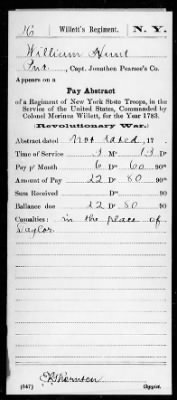 H | Willett's Regiment. | N. Y.
William Hunt
Pvt., Capt. Jonathan Pearsee's Co.
Appears on a
Pay Abstract
of a Regiment of New York State Troops, in the
Service of the United States, Commanded by
Colonel Marinus Willett, for the Year 1783.
Revolutionary War.
Abstract dated Not dated, 17
Time of Service 3 Ms 13 Ds
Pay p Month 6 Ds 60 90ths
Amount of Pay 22 Ds 80 90ths
Sum Received Ds 90ths
Ballance due 22 Ds 80 90ths
Casualties: in the place of
Taylor.
Thornsen
(547) Copyist.